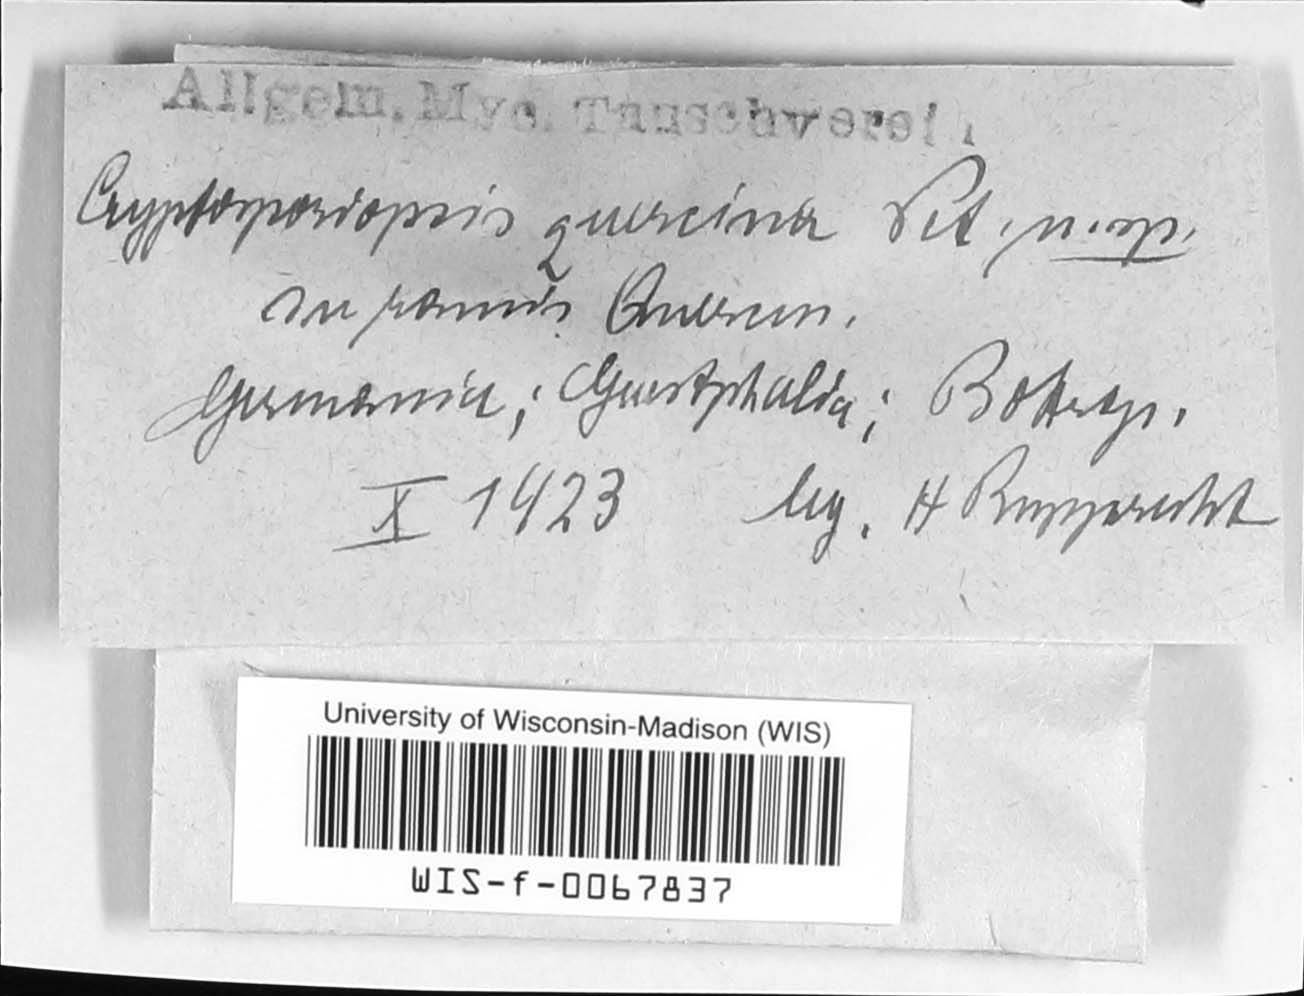 Allgem. Myc. Tauschverei
Cryptosporiopsis quercina Pet., n. sp.
in ramis Quercus.
Germania; Guestphalia; Bottrop.
X 1923 leg. H Rupprecht
University of Wisconsin-Madison (WIS)
WIS-f-0067837